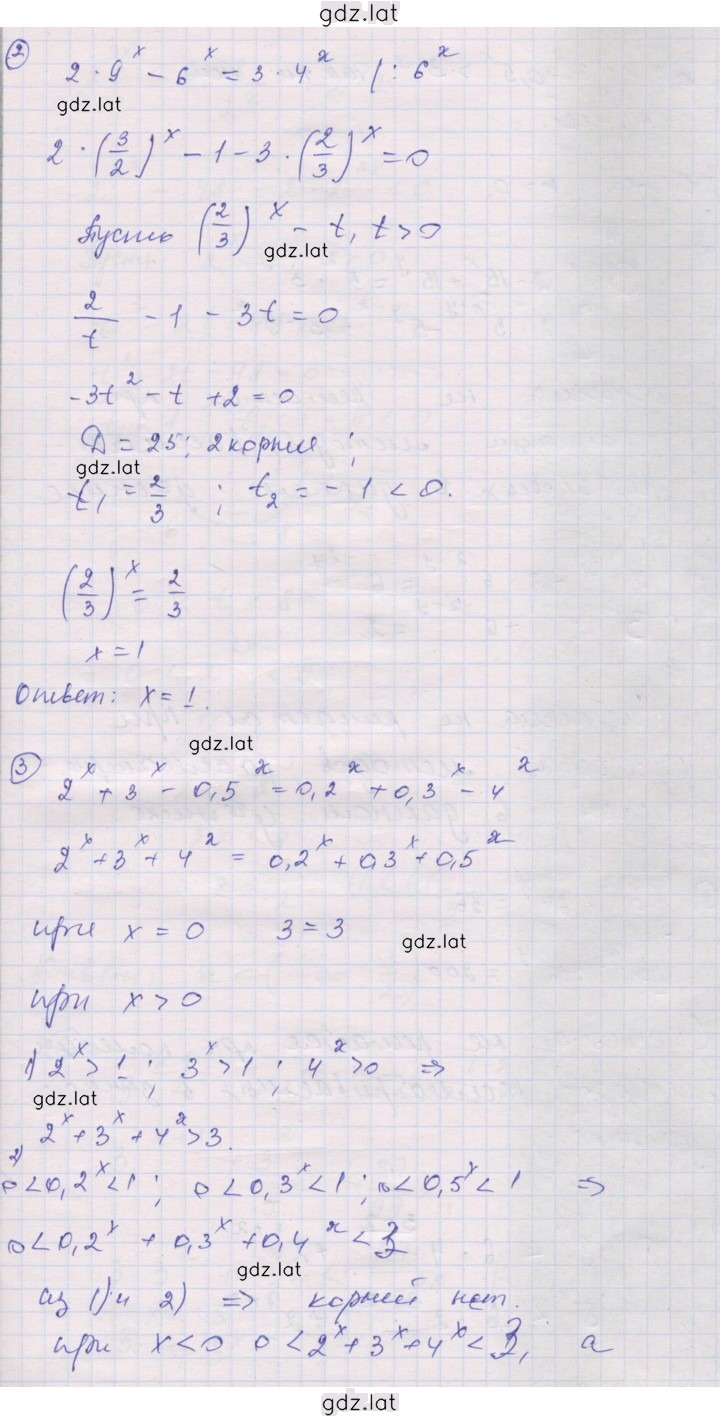 gdz.lat
② 2 · 9^x - 6^x = 3 · 4^x | : 6^x
gdz.lat
2 · (3/2)^x - 1 - 3 · (2/3)^x = 0
Пусть (2/3)^x - t, t > 0
gdz.lat
2/t - 1 - 3t = 0
-3t^2 - t + 2 = 0
D = 25; 2 корня;
gdz.lat
t₁ = 2/3 ; t₂ = -1 < 0.
(2/3)^x = 2/3
x = 1
Ответ: x = 1.
gdz.lat
③ 2^x + 3^x - 0,5^x = 0,2^x + 0,3^x - 4^x
2^x + 3^x + 4^x = 0,2^x + 0,3^x + 0,5^x
при x = 0 3 = 3
gdz.lat
при x > 0
1) 2^x > 1 ; 3^x > 1 ; 4^x > 0 ⇒
gdz.lat
2^x + 3^x + 4^x > 3.
2) 0 < 0,2^x < 1 ; 0 < 0,3^x < 1 ; 0 < 0,5^x < 1 ⇒
0 < 0,2^x + 0,3^x + 0,4^x < 3
gdz.lat
из 1) и 2) ⇒ корней нет.
при x < 0 0 < 2^x + 3^x + 4^x < 3, а
gdz.lat